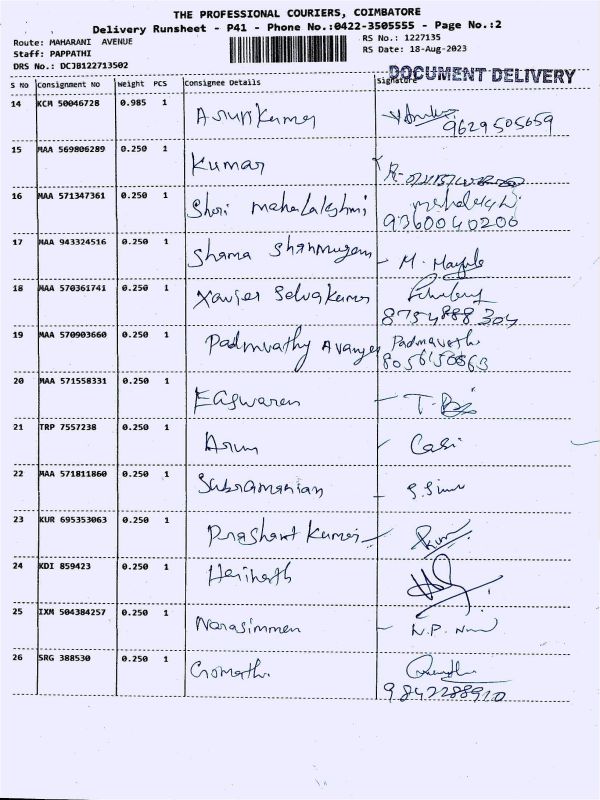 THE PROFESSIONAL COURIERS, COIMBATORE
Delivery Runsheet - P41 - Phone No.:0422-3505555 - Page No.:2
Route: MAHARANI AVENUE
RS No.: 1227135
Staff: PAPPATHI
RS Date: 18-Aug-2023
DRS No.: DCJB122713502
DOCUMENT DELIVERY
S No Consignment No Weight PCS Consignee Details Signature
14 KCM 50046728 0.985 1 Arunkumar
9629505659
15 MAA 569806289 0.250 1 Kumar
16 MAA 571347361 0.250 1 Shri mahalakshmi
9360040206
17 MAA 943324516 0.250 1 Shama Shanmugam M.
18 MAA 570361741 0.250 1 Xavier Selvakumar
8754888304
19 MAA 570903660 0.250 1 Padmvathy Padmavathi
8056150563
20 MAA 571558331 0.250 1 Easwaren
21 TRP 7557238 0.250 1 Arun Casi
22 MAA 571811860 0.250 1 Subramanian
23 KUR 695353063 0.250 1 Prashant Kumar
24 KDI 859423 0.250 1 Harinath
25 IXM 504384257 0.250 1 Narasimmen N.P.
26 SRG 388530 0.250 1 Gomathi
9842288910